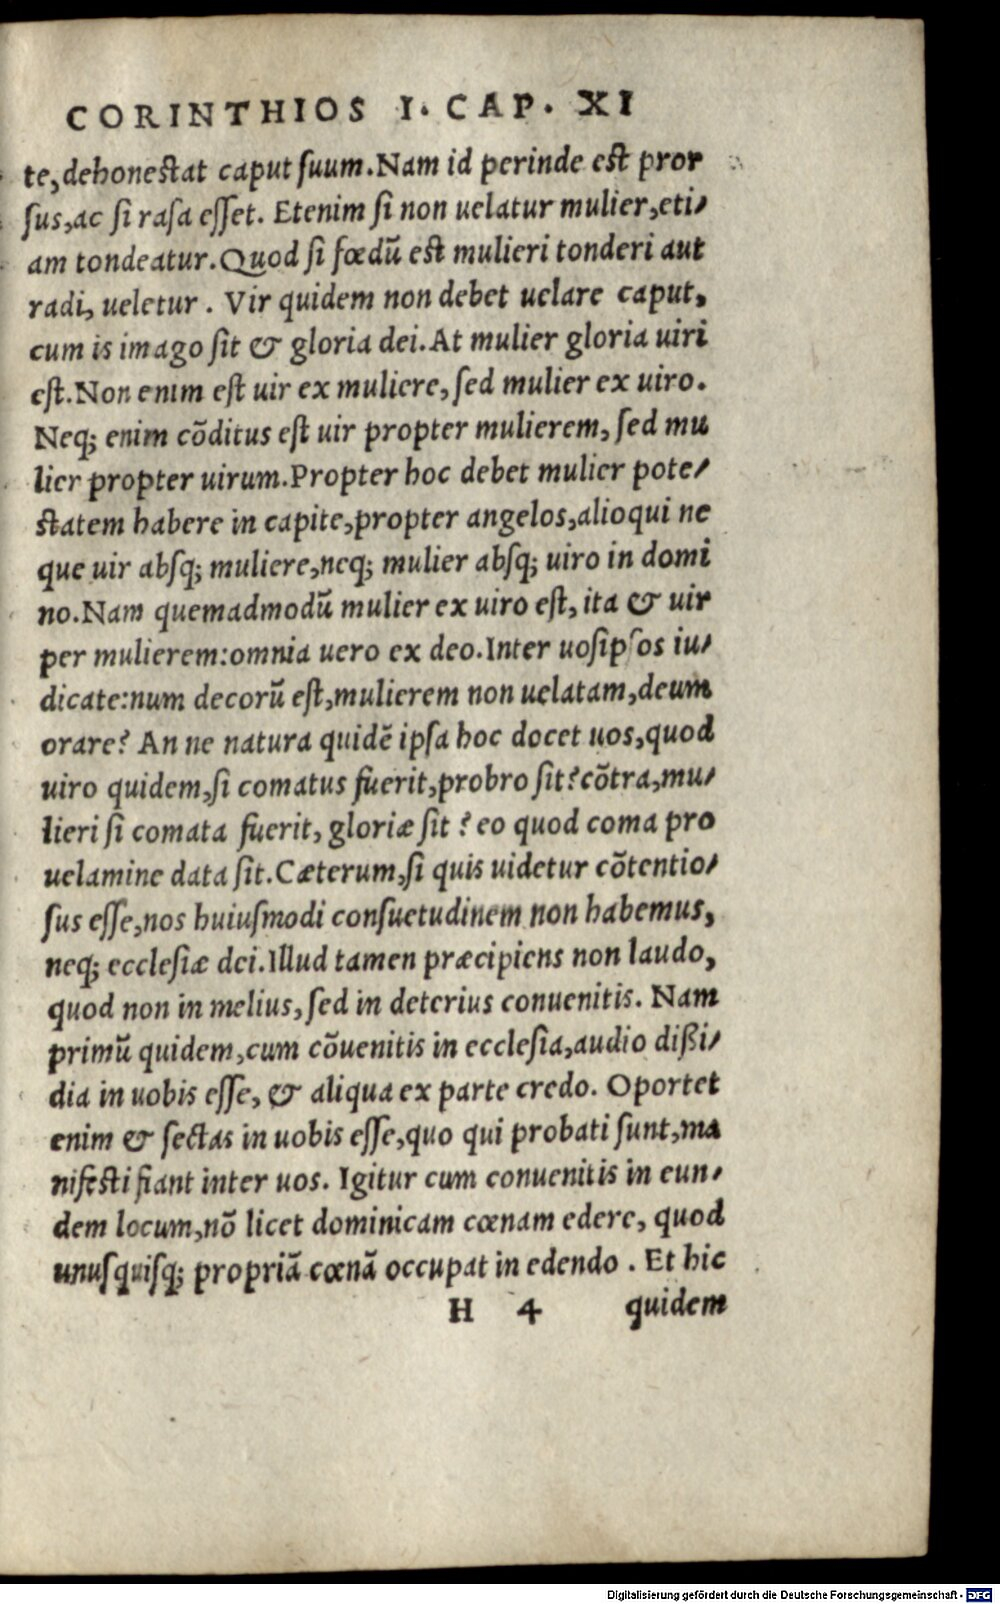 CORINTHIOS I. CAP. XI
te, dehoneſtat caput ſuum. Nam id perinde eſt pror
ſus, ac ſi raſa eſſet. Etenim ſi non uelatur mulier, eti⸗
am tondeatur. Quod ſi fœdū eſt mulieri tonderi aut
radi, ueletur. Vir quidem non debet uelare caput,
cum is imago ſit & gloria dei. At mulier gloria uiri
eſt. Non enim eſt uir ex muliere, ſed mulier ex uiro.
Neq; enim cōditus eſt uir propter mulierem, ſed mu
lier propter uirum. Propter hoc debet mulier pote⸗
ſtatem habere in capite, propter angelos, alioqui ne
que uir abſq; muliere, neq; mulier abſq; uiro in domi
no. Nam quemadmodū mulier ex uiro eſt, ita & uir
per mulierem: omnia uero ex deo. Inter uoſipſos iu⸗
dicate: num decorū eſt, mulierem non uelatam, deum
orare? An ne natura quidē ipſa hoc docet uos, quod
uiro quidem, ſi comatus fuerit, probro ſit? cōtra, mu⸗
lieri ſi comata fuerit, gloriæ ſit? eo quod coma pro
uelamine data ſit. Cæterum, ſi quis uidetur cōtentio⸗
ſus eſſe, nos huiuſmodi conſuetudinem non habemus,
neq; eccleſiæ dei. Illud tamen præcipiens non laudo,
quod non in melius, ſed in deterius conuenitis. Nam
primū quidem, cum cōuenitis in eccleſia, audio dißi⸗
dia in uobis eſſe, & aliqua ex parte credo. Oportet
enim & ſectas in uobis eſſe, quo qui probati ſunt, ma
nifeſti fiant inter uos. Igitur cum conuenitis in eun⸗
dem locum, nō licet dominicam cœnam edere, quod
unuſquiſq; propriā cœnā occupat in edendo. Et hic
H 4 quidem
Digitalisierung gefördert durch die Deutsche Forschungsgemeinschaft - DFG